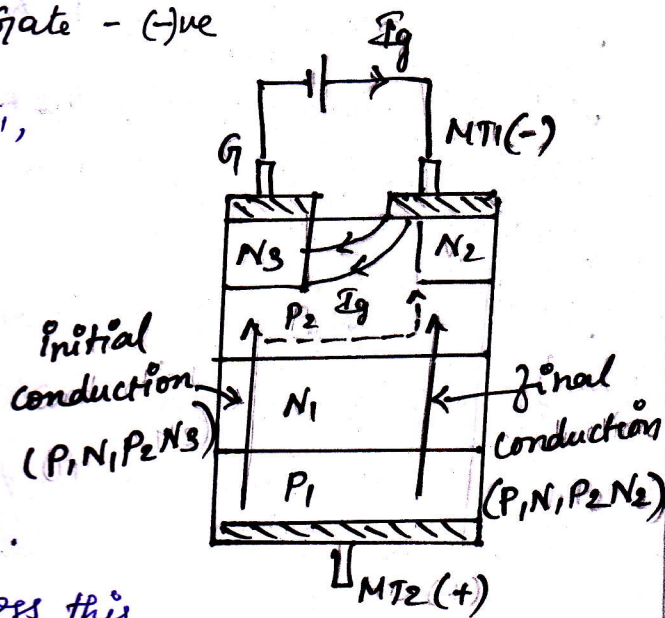 Gate - (-)ve
Ig
G
MT1(-)
N3
N2
P2
Ig
initial
conduction
(P1N1P2N3)
N1
final
conduction
(P1N1P2N2)
P1
MT2(+)
this